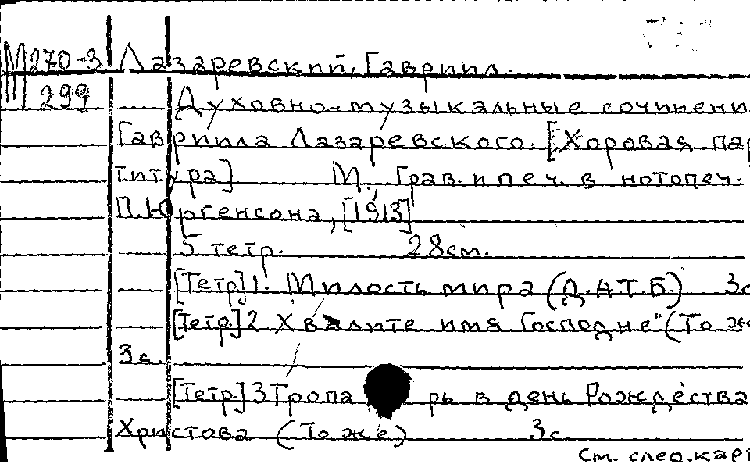 М270-3 Лазаревский, Гавриил.
299 Духовно-музыкальные сочинени
Гавриила Лазаревского. [Хоровая пар
титура] М., Грав. и печ. в нотопеч.
П. Юргенсона, [1913]
5 тетр. 28см.
[Тетр.]1. Милость мира (Д.А.Т.Б) 3с
[Тетр.]2 Хвалите имя Господне" (То же
3с.
[Тетр.]3 Тропарь в день Рождества
Христова (То же) 3с
См. след. карт